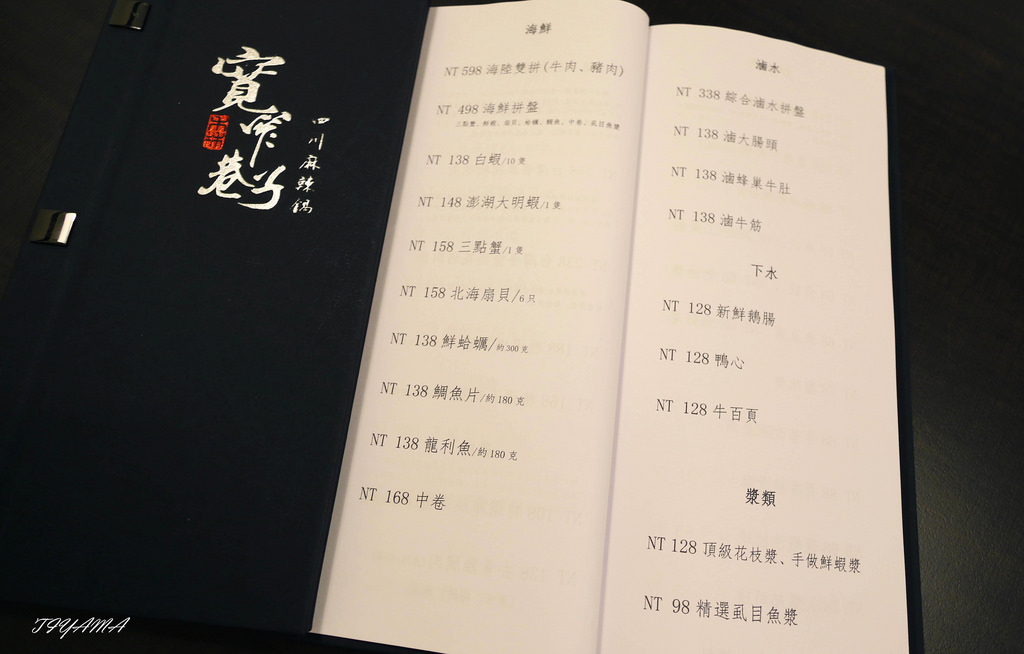 寬窄巷子
四川麻辣鍋
海鮮
NT 598 海陸雙拼(牛肉、豬肉)
NT 498 海鮮拼盤
三點蟹、鮮蝦、扇貝、蛤蠣、鯛魚、中卷、虱目魚漿
NT 138 白蝦/10 隻
NT 148 澎湖大明蝦/1 隻
NT 158 三點蟹/1 隻
NT 158 北海扇貝/6 只
NT 138 鮮蛤蠣/約 300 克
NT 138 鯛魚片/約 180 克
NT 138 龍利魚/約 180 克
NT 168 中卷
滷水
NT 338 綜合滷水拼盤
NT 138 滷大腸頭
NT 138 滷蜂巢牛肚
NT 138 滷牛筋
下水
NT 128 新鮮鵝腸
NT 128 鴨心
NT 128 牛百頁
漿類
NT 128 頂級花枝漿、手做鮮蝦漿
NT 98 精選虱目魚漿
TIYAMA